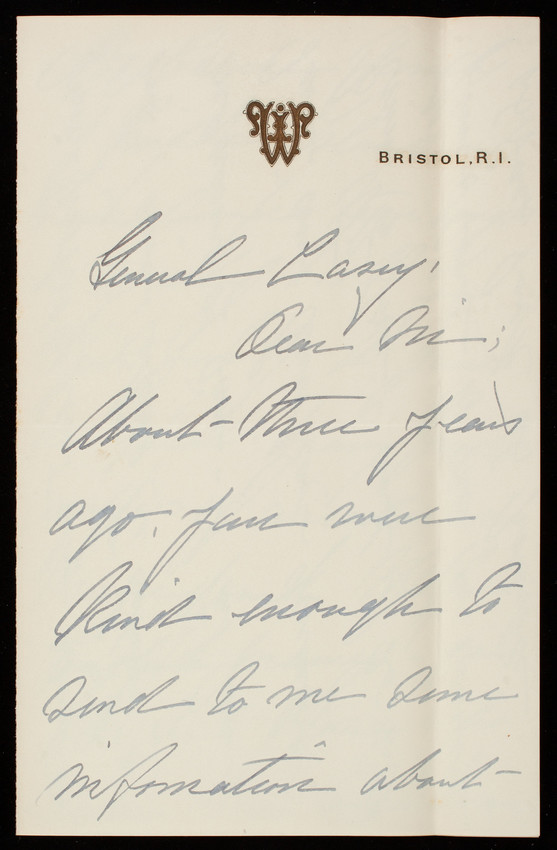 BRISTOL, R.I.
General Casey,
Dear Sir;
About three years
ago, you were
kind enough to
send to me some
information about